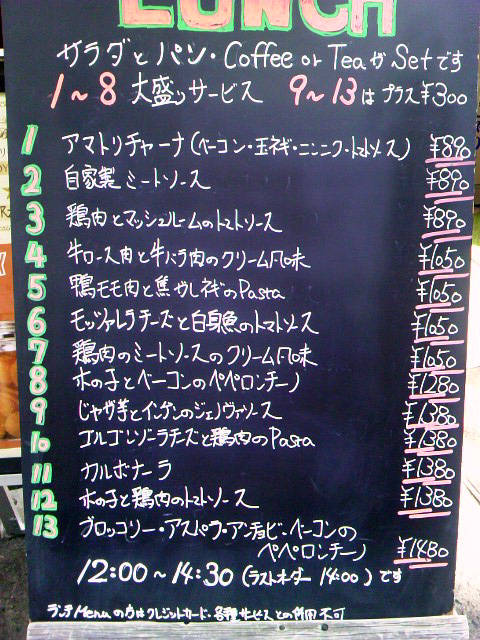 LUNCH
サラダとパン・Coffee or Tea が Set です
1~8 大盛りサービス 9~13は プラス¥300
1 アマトリチャーナ(ベーコン・玉ネギ・ニンニク・トマトソース) ¥890
2 自家製ミートソース ¥890
3 鶏肉とマッシュルームのトマトソース ¥890
4 牛ロース肉と牛バラ肉のクリーム風味 ¥1050
5 鴨モモ肉と焦がし葱のPasta ¥1050
6 モッツァレラチーズと白身魚のトマトソース ¥1050
7 鶏肉のミートソースのクリーム風味 ¥1050
8 木の子とベーコンのペペロンチーノ ¥1280
9 じゃが芋とインゲンのジェノヴァソース ¥1380
10 ゴルゴンゾーラチーズと鶏肉のPasta ¥1380
11 カルボナーラ ¥1380
12 木の子と鶏肉のトマトソース ¥1380
13 ブロッコリー・アスパラ・アンチョビ・ベーコンの
ペペロンチーノ ¥1480
12:00~14:30 (ラストオーダー 14:00) です
ランチMenuの方はクレジットカード・各種サービスとの併用不可